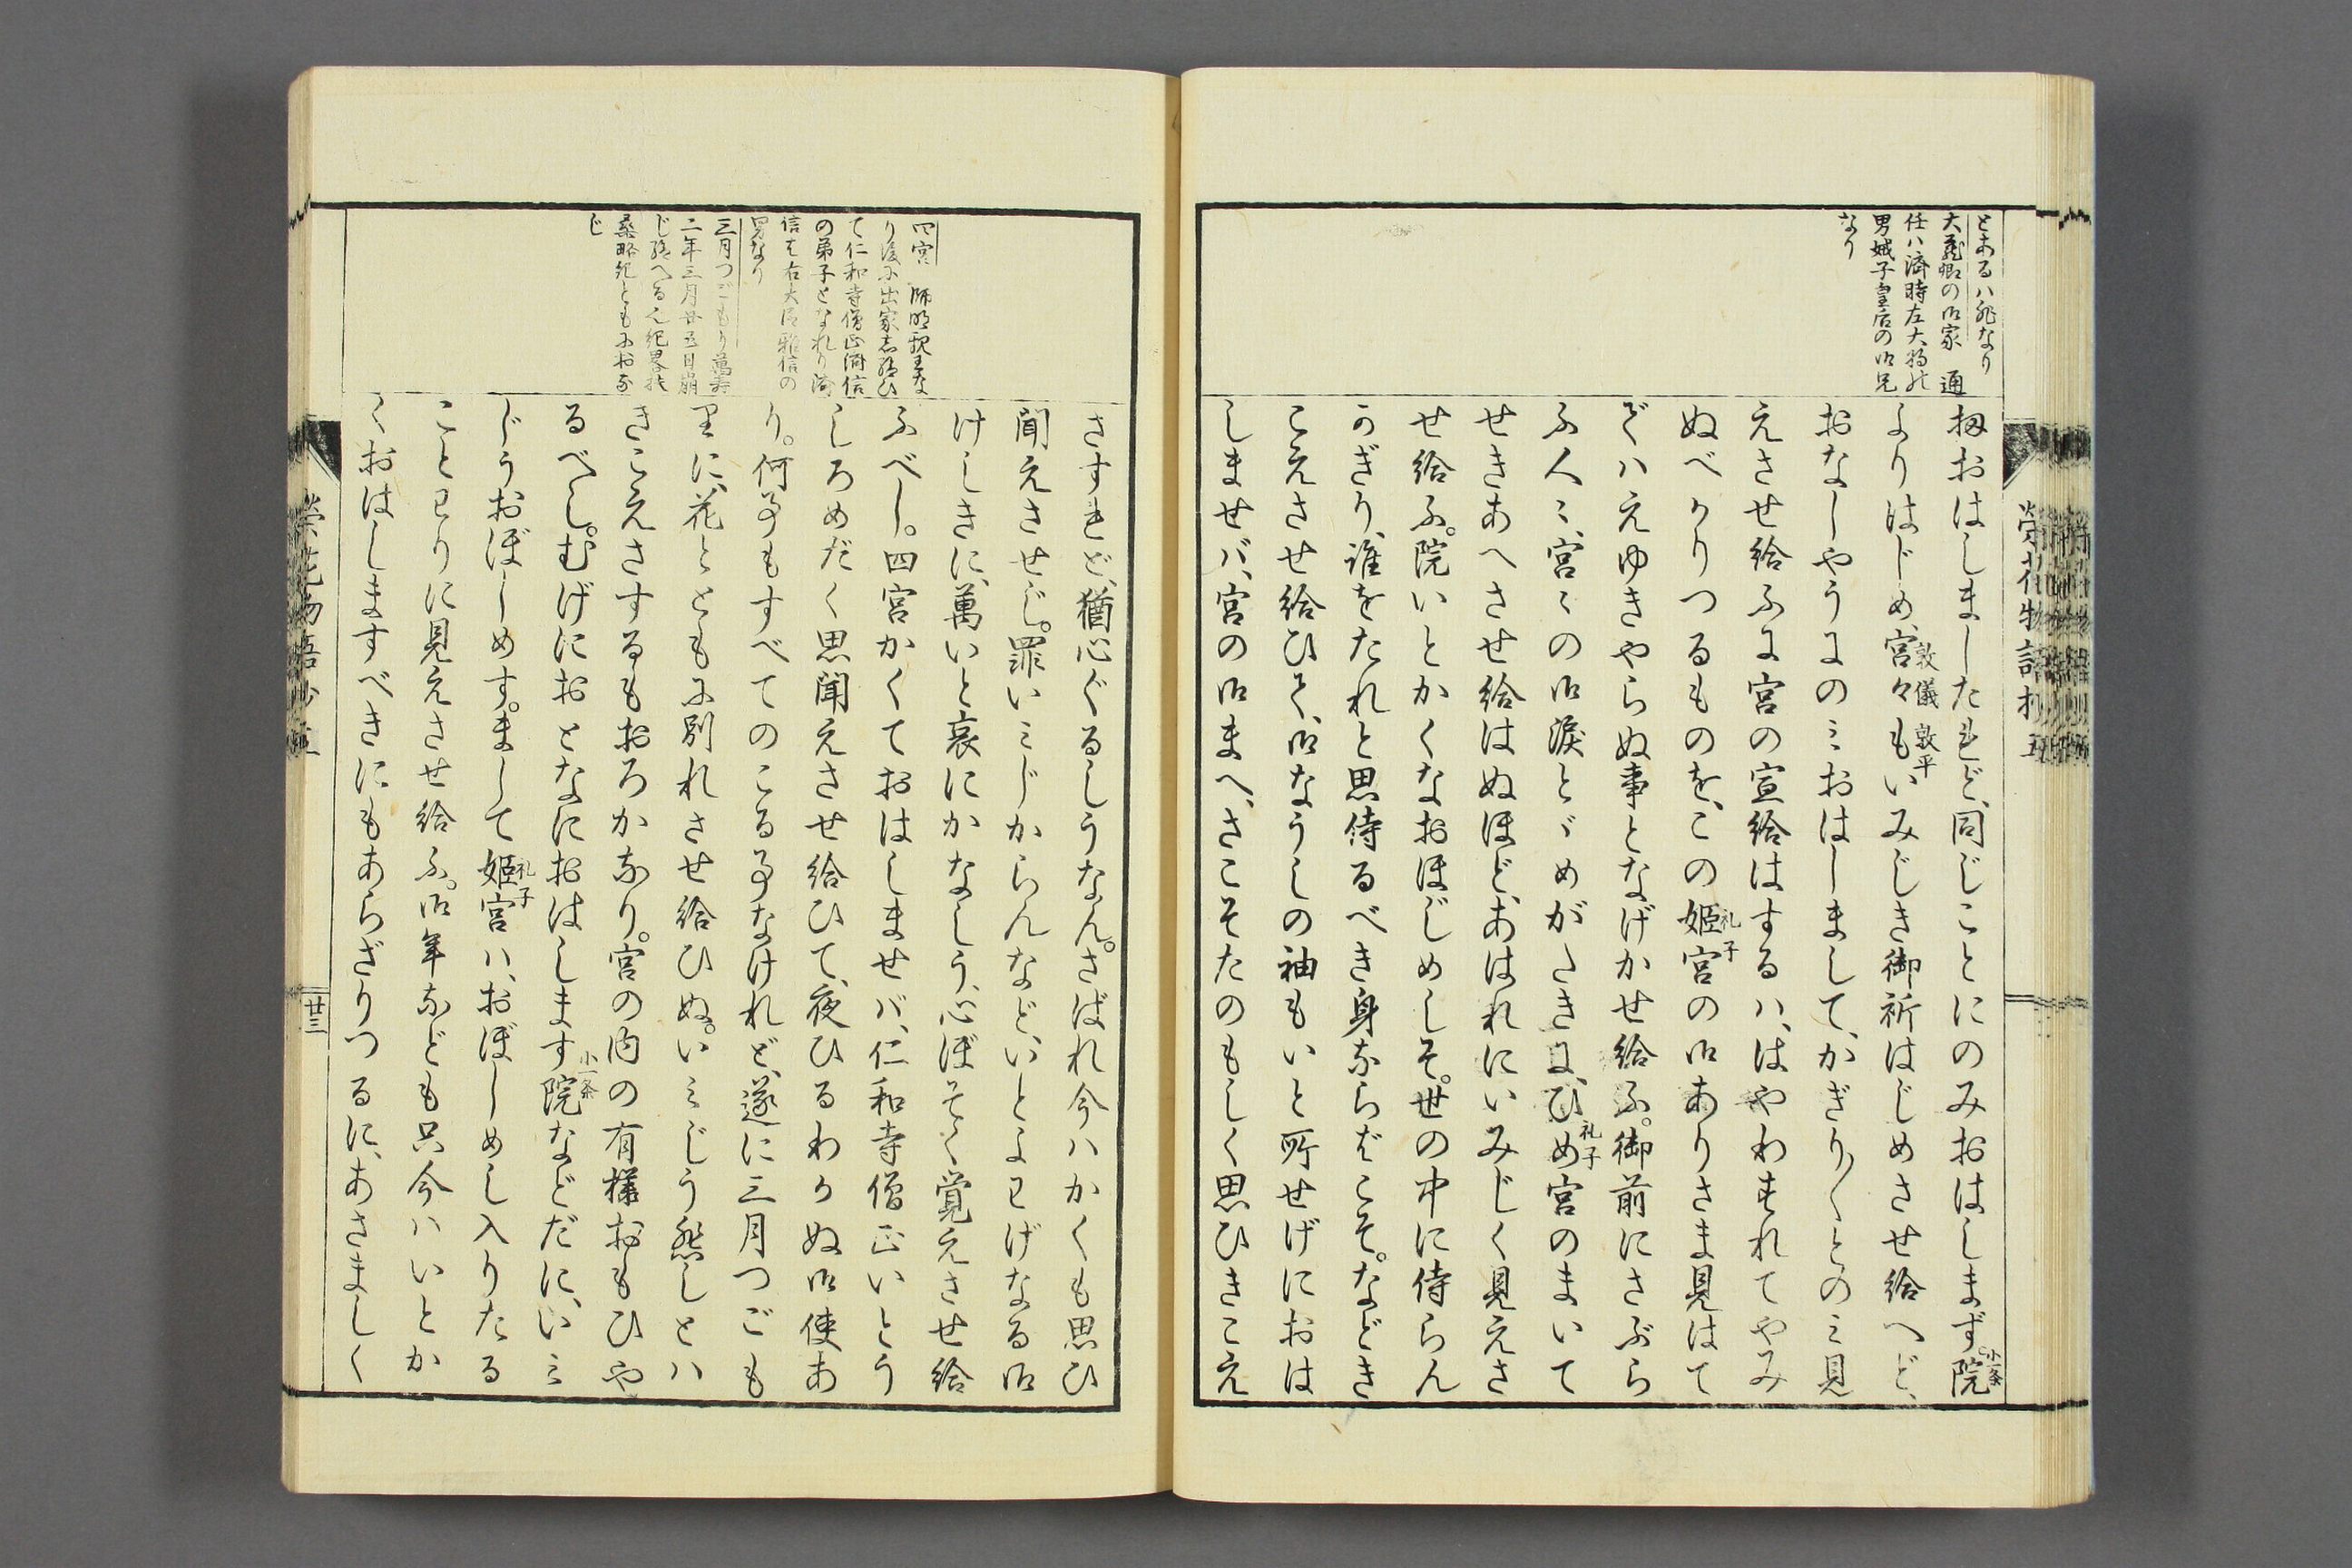 とあるハ非なり
大藏卿の御家　通
任ハ濟時左大将の
男娍子皇后の御兄
なり
扨おはしましたれど、同じことにのみおはしまず。院
小一条
よりはじめ、宮々もいみじき御祈はじめさせ給へど、
敦儀 敦平
おなじやうにのミおはしまして、かぎり〳〵とのミ見
えさせ給ふに宮の宣給はするハ、はやわすれてやみ
ぬべかりつるものを、この姫宮の御ありさま見はて
礼子
でハえゆきやらぬ事となげかせ給ふ。御前にさぶら
ふ人ミ、宮ミの御涙とゞめがたきに、ひめ宮のまいて
礼子
せきあへさせ給はぬほど、あはれにいみじく見えさ
せ給ふ。院いとかくなおほしめしそ。世の中に侍らん
かぎり、誰をたれと思侍るべき身ならばこそ。などき
こえさせ給ひて、御なうしの袖もいと所せげにおは
しませバ、宮の御まへ、さこそたのもしく思ひきこえ
榮花物語抄五
四宮　師明親王な
り後に出家し給ひ
て仁和寺僧正済信
の弟子となれり済
信は右大臣雅信の
男なり
三月つごもり萬寿
二年三月廿五日崩
じ給へるよし紀畧扶
桑略紀ともにおな
じ
さすれど、猶心ぐるしうなん。さばれ今ハかくも思ひ
聞えさせじ。罪いミじからんなど、いとよわげなる御
けしきに、萬いと哀にかなしう、心ぼそく覚えさせ給
ふべし。四宮かくておはしませバ、仁和寺僧正いとう
しろめだく思聞えさせ給ひて、夜ひるわかぬ御使あ
り。何事もすべてのこる事なけれど、遂に三月つごも
りに、花とともに別れさせ給ひぬ。いミじう悲しとハ
きこえさするもおろかなり。宮の内の有様おもひや
るべし。むげにおとなにおはします院などだに、いミ
小一条
じうおぼしめす。まして姫宮ハ、おぼしめし入りたる
礼子
ことわりに見えさせ給ふ。御年なども只今ハいとか
くおはしますべきにもあらざりつるに、あさましく
榮花物語抄五
廿三